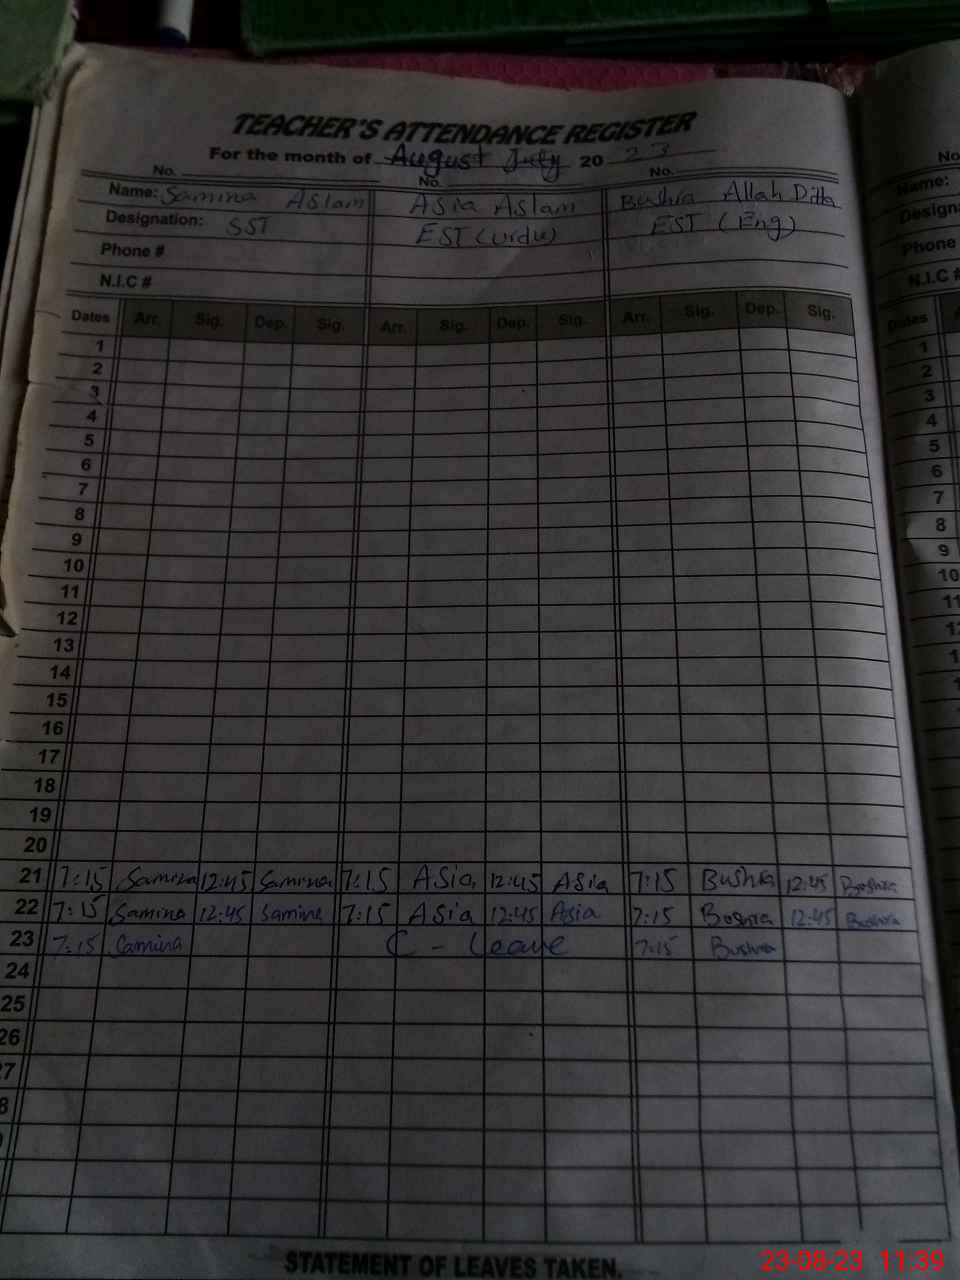 TEACHER'S ATTENDANCE REGISTER
For the month of August July 20 23
No. No. No.
Name: Samina Aslam Asia Aslam Bushra Allah Ditta
Designation: SST EST (Urdu) EST (Eng)
Phone #
N.I.C #
Dates Arr. Sig. Dep. Sig. Arr. Sig. Dep. Sig. Arr. Sig. Dep. Sig.
1
2
3
4
5
6
7
8
9
10
11
12
13
14
15
16
17
18
19
20
21 7:15 Samina 12:45 Samina 7:15 Asia 12:45 Asia 7:15 Bushra 12:45 Bushra
22 7:15 Samina 12:45 Samina 7:15 Asia 12:45 Asia 7:15 Bushra 12:45 Bushra
23 7:15 Samina C - Leave 7:15 Bushra
24
25
26
27
8
STATEMENT OF LEAVES TAKEN.
No
Name:
Design
Phone
N.I.C #
Dates
1
2
3
4
5
6
7
8
9
10
11
23-08-23 11:39